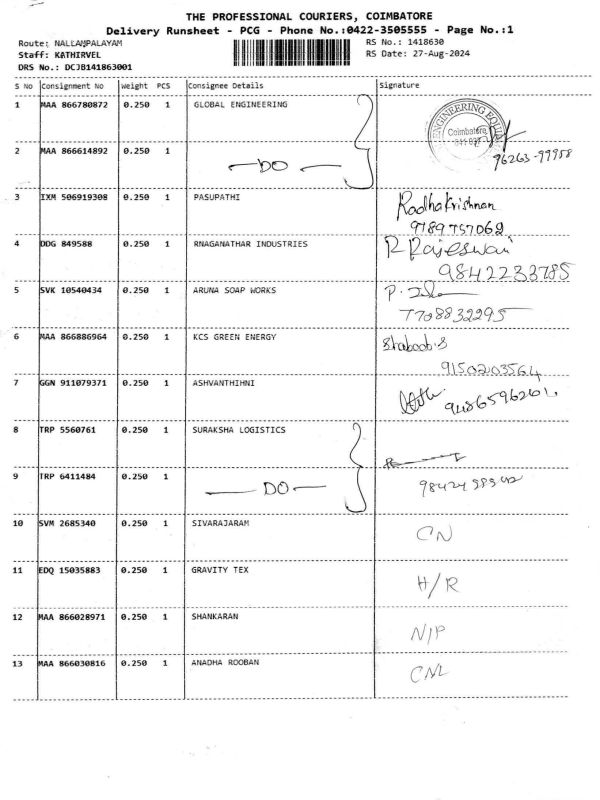 THE PROFESSIONAL COURIERS, COIMBATORE
Delivery Runsheet - PCG - Phone No.:0422-3505555 - Page No.:1
Route: NALLAMPALAYAM RS No.: 1418630
Staff: KATHIRVEL RS Date: 27-Aug-2024
DRS No.: DCJB141863001
S No Consignment No Weight PCS Consignee Details Signature
1 MAA 866780872 0.250 1 GLOBAL ENGINEERING
ENGINEERING
Coimbatore
2 MAA 866614892 0.250 1 DO 96263-99958
3 IXM 506919308 0.250 1 PASUPATHI Radhakrishnan
9789757062
4 DDG 849588 0.250 1 RNAGANATHAR INDUSTRIES R Rajeswari
9842233785
5 SVK 10540434 0.250 1 ARUNA SOAP WORKS
7708832295
6 MAA 866886964 0.250 1 KCS GREEN ENERGY
9150203564
7 GGN 911079371 0.250 1 ASHVANTHIHNI
9486596261
8 TRP 5560761 0.250 1 SURAKSHA LOGISTICS
9 TRP 6411484 0.250 1 DO
10 SVM 2685340 0.250 1 SIVARAJARAM CN
11 EDQ 15035883 0.250 1 GRAVITY TEX H/R
12 MAA 866028971 0.250 1 SHANKARAN N/P
13 MAA 866030816 0.250 1 ANADHA ROOBAN CNL